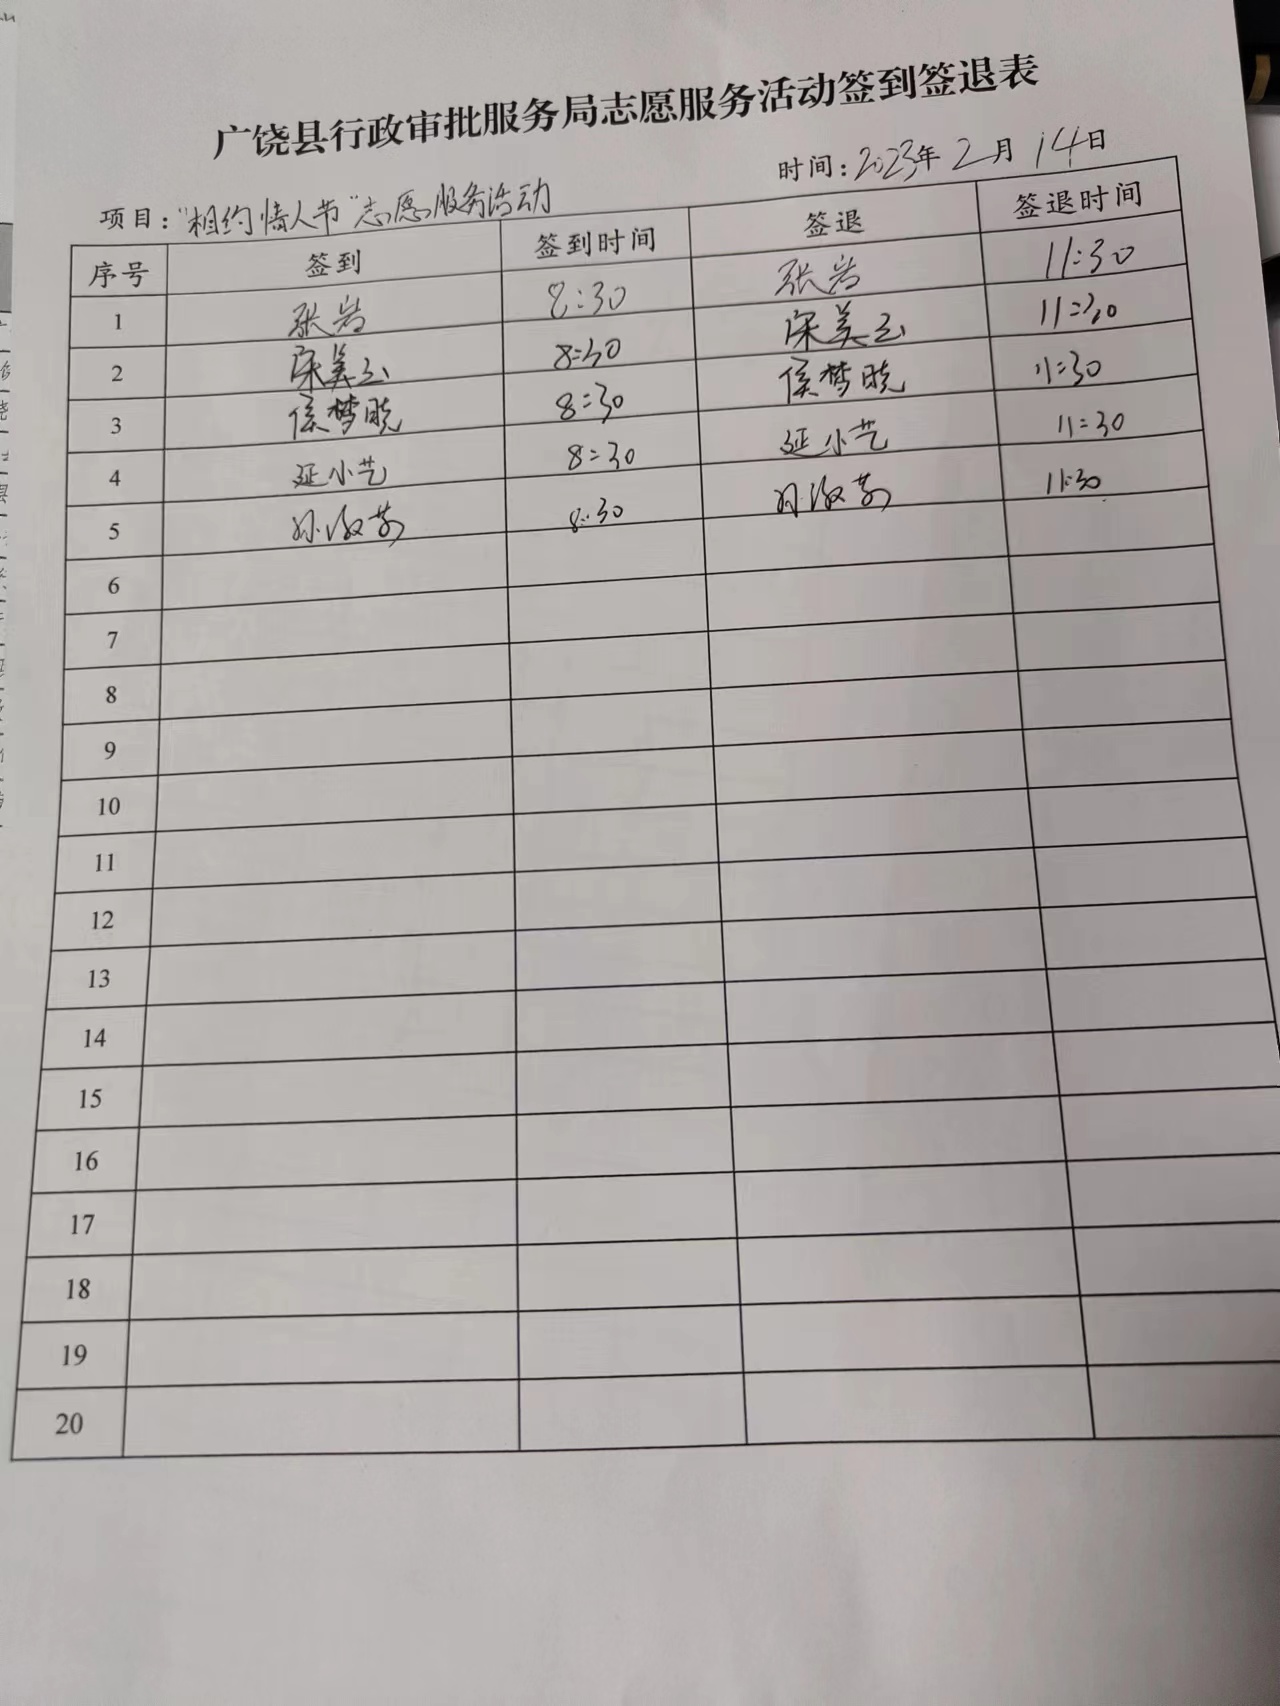 广饶县行政审批服务局志愿服务活动签到签退表
时间:2023年2月14日
项目:"相约情人节"志愿服务活动
序号 签到 签到时间 签退 签退时间
1 张岩 8:30 张岩 11:30
2 宋美玉 8:30 宋美玉 11:30
3 侯梦晓 8:30 侯梦晓 11:30
4 延小艺 8:30 延小艺 11:30
5 孙 8:30 孙 11:30
6
7
8
9
10
11
12
13
14
15
16
17
18
19
20